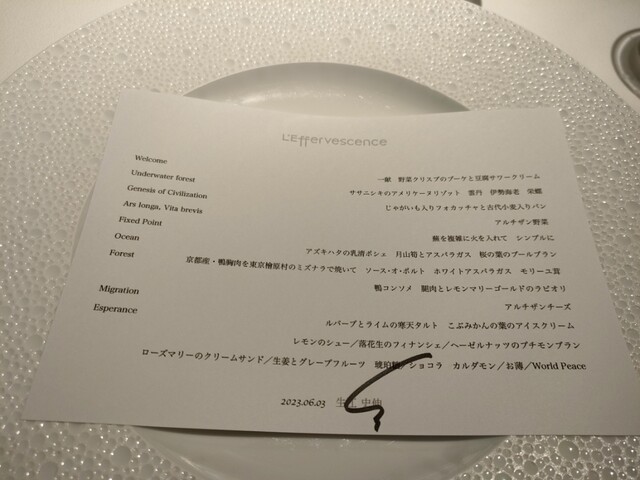 L'Effervescence
Welcome
Underwater forest 一献 野菜クリスプのブーケと豆腐サワークリーム
Genesis of Civilization ササニシキのアメリケーヌリゾット 雲丹 伊勢海老 栄螺
Ars longa, Vita brevis じゃがいも入りフォカッチャと古代小麦入りパン
Fixed Point アルチザン野菜
Ocean 蕪を複雑に火を入れて シンプルに
Forest アズキハタの乳清ポシェ 月山筍とアスパラガス 桜の葉のブールブラン
京都産・鴨胸肉を東京檜原村のミズナラで焼いて ソース・オ・ポルト ホワイトアスパラガス モリーユ茸
Migration 鴨コンソメ 腿肉とレモンマリーゴールドのラビオリ
Esperance アルチザンチーズ
ルバーブとライムの寒天タルト こぶみかんの葉のアイスクリーム
レモンのシュー/落花生のフィナンシェ/ヘーゼルナッツのプチモンブラン
ローズマリーのクリームサンド/生姜とグレープフルーツ 琥珀糖/ショコラ カルダモン/お薄/World Peace
2023.06.03 生江 史伸